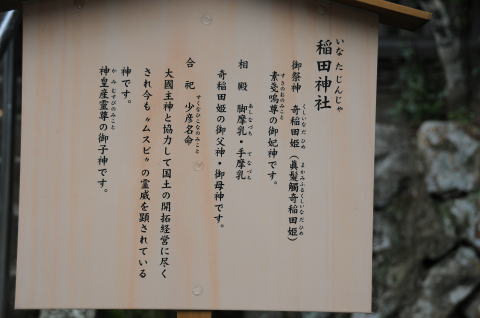 稲田神社
いなたじんじゃ
御祭神 奇稲田姫(眞髪觸奇稲田姫)
くしいなだひめ まかみふるくしいなだひめ
素戔嗚尊の御妃神です。
すさのおのみこと
相殿 脚摩乳・手摩乳
あしなづち てなづち
奇稲田姫の御父神・御母神です。
合祀 少彦名命
すくなひこなのみこと
大國主神と協力して国土の開拓経営に尽く
され今も〝ムスビ〟の霊威を顕されている
神です。
神皇産霊尊の御子神です。
かみむすびのみこと